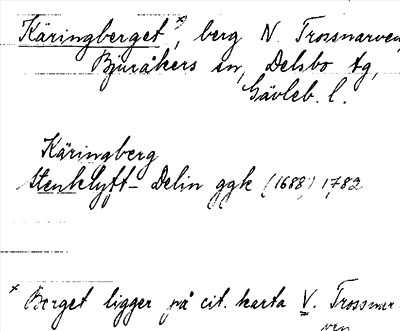 Käringberget*, berg N. Trossnarven,
Bjuråkers sn, Delsbo tg,
Gävleb. l.
Käringberg
Stenklyft- Delin ggk (1688) 1782
* Berget ligger på cit. karta V. Trossnar-
ven